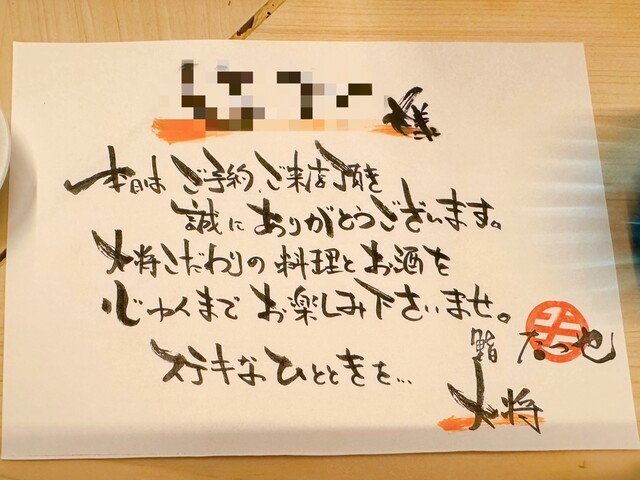 様
本日は ご予約、ご来店頂き
誠に ありがとうございます。
大将こだわりの 料理と お酒を
心ゆくまで お楽しみ下さいませ。
ステキな ひとときを…
鮨 たつや
大将